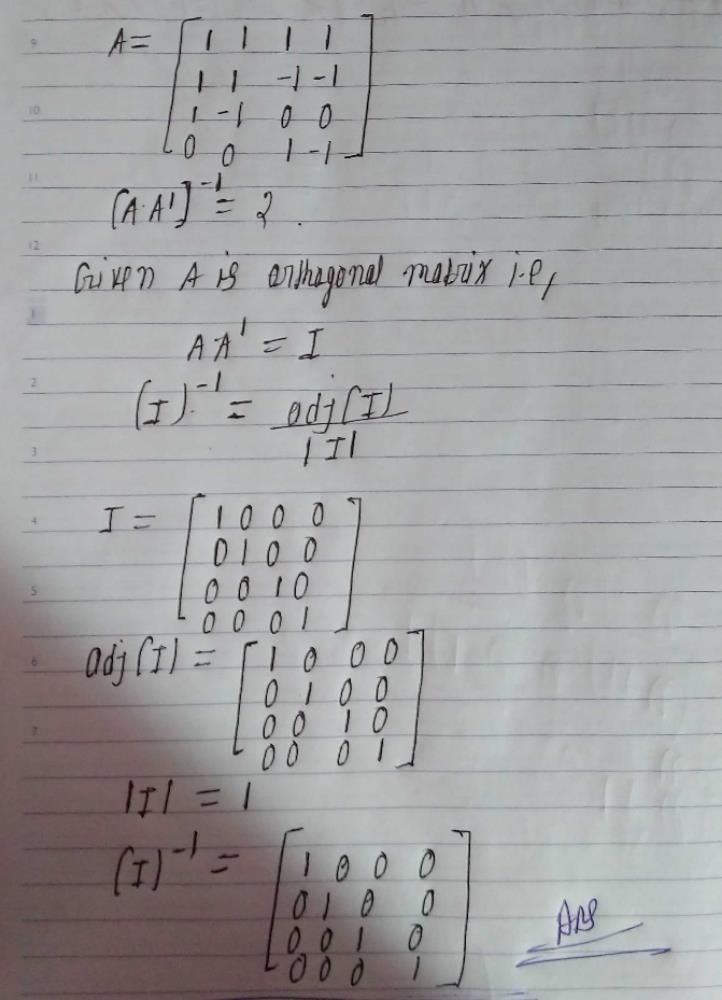 9
A = [ 1 1 1 1
1 1 -1 -1
10
1 -1 0 0
0 0 1 -1 ]
11
(A·A')⁻¹ = ?.
12
Given A is orthagonal matrix i.e,
1
AA' = I
2
(I)⁻¹ = adj(I)
|I|
3
4
I = [ 1 0 0 0
0 1 0 0
5
0 0 1 0
0 0 0 1 ]
6
adj(I) = [ 1 0 0 0
0 1 0 0
7
0 0 1 0
0 0 0 1 ]
|I| = 1
(I)⁻¹ = [ 1 0 0 0
0 1 0 0
0 0 1 0
0 0 0 1 ]
Ans